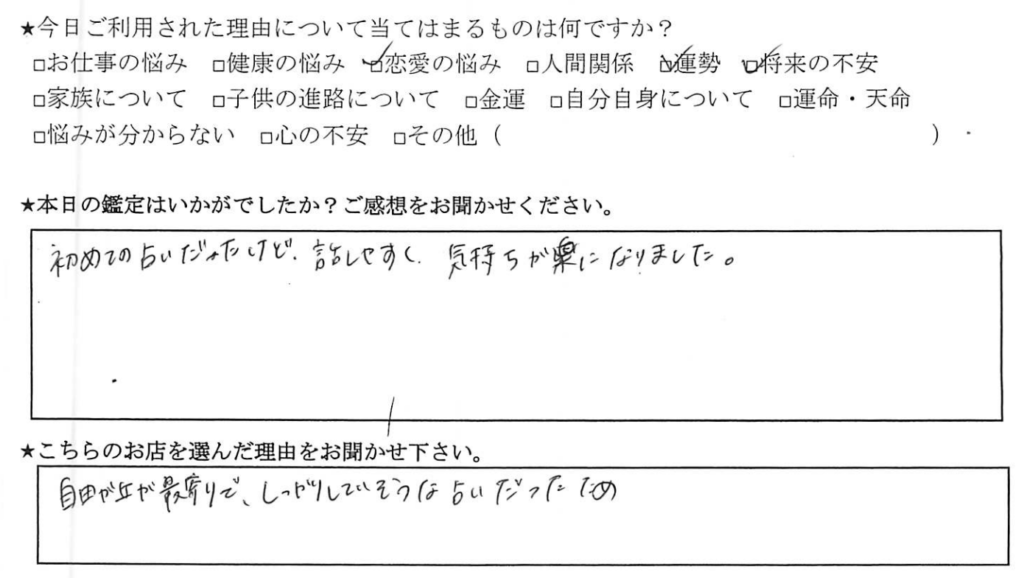 ★今日ご利用された理由について当てはまるものは何ですか？
□お仕事の悩み　□健康の悩み　☑恋愛の悩み　□人間関係　☑運勢　☑将来の不安
□家族について　□子供の進路について　□金運　□自分自身について　□運命・天命
□悩みが分からない　□心の不安　□その他（　　　　　　　　　　　　　　　　　　　）
★本日の鑑定はいかがでしたか？ご感想をお聞かせください。
初めての占いだったけど、話しやすく、気持ちが楽になりました。
★こちらのお店を選んだ理由をお聞かせ下さい。
自由が丘が最寄りで、しっかりしていそうな占いだったため